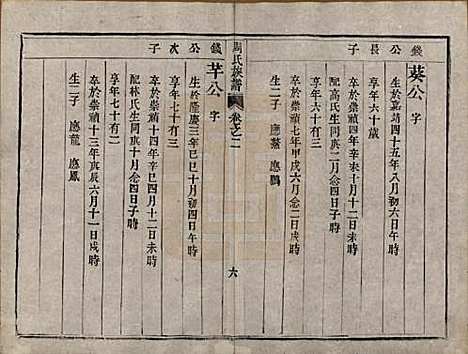 錢公長子
葵公字
生於嘉靖四十五年八月初六日午時
卒於崇禎四年辛未十月十二日未時
享年六十歲
配高氏生同庚二月念四日子時
卒於崇禎七年甲戌六月念二日戌時
生二子 應鰲 應鵬
周氏族譜 卷之二 六
錢公次子
芊公字
生於隆慶三年己巳十月初四日午時
卒於崇禎十四年辛巳四月十二日未時
享年七十有三
配林氏生同庚十月念四日戌時
卒於崇禎十三年庚辰六月十一日戌時
享年七十有二
生二子 應龍 應鳳